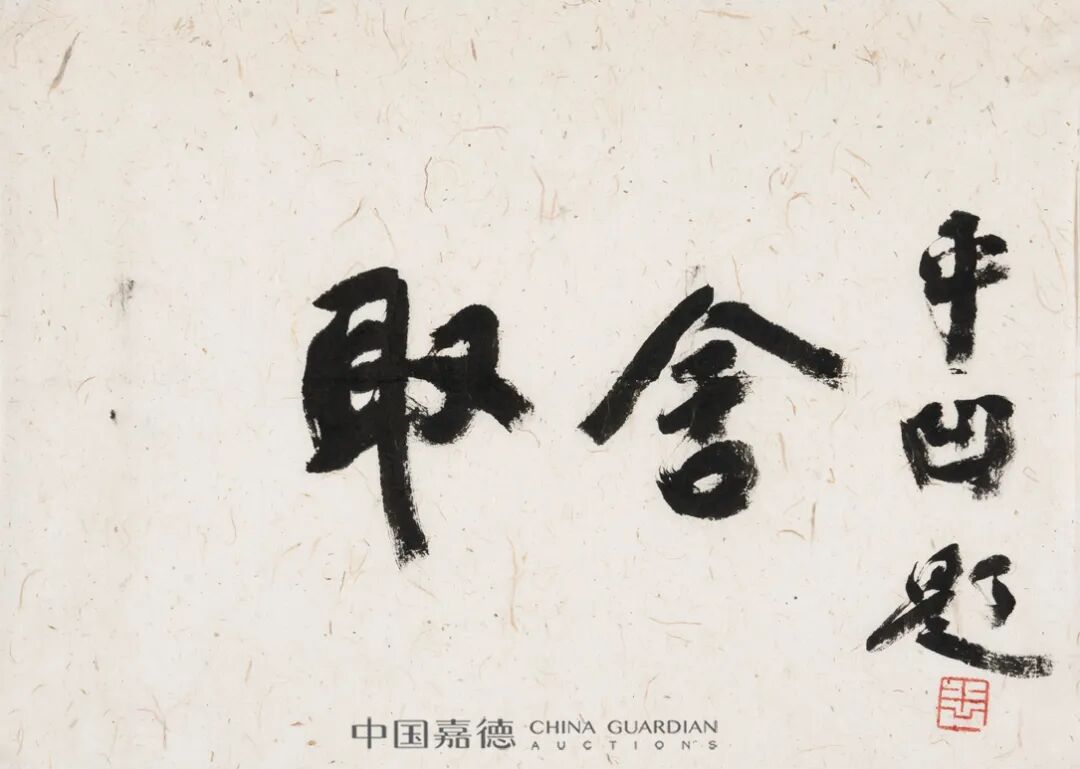 取舍
平凹题
中国嘉德 CHINA GUARDIAN
AUCTIONS